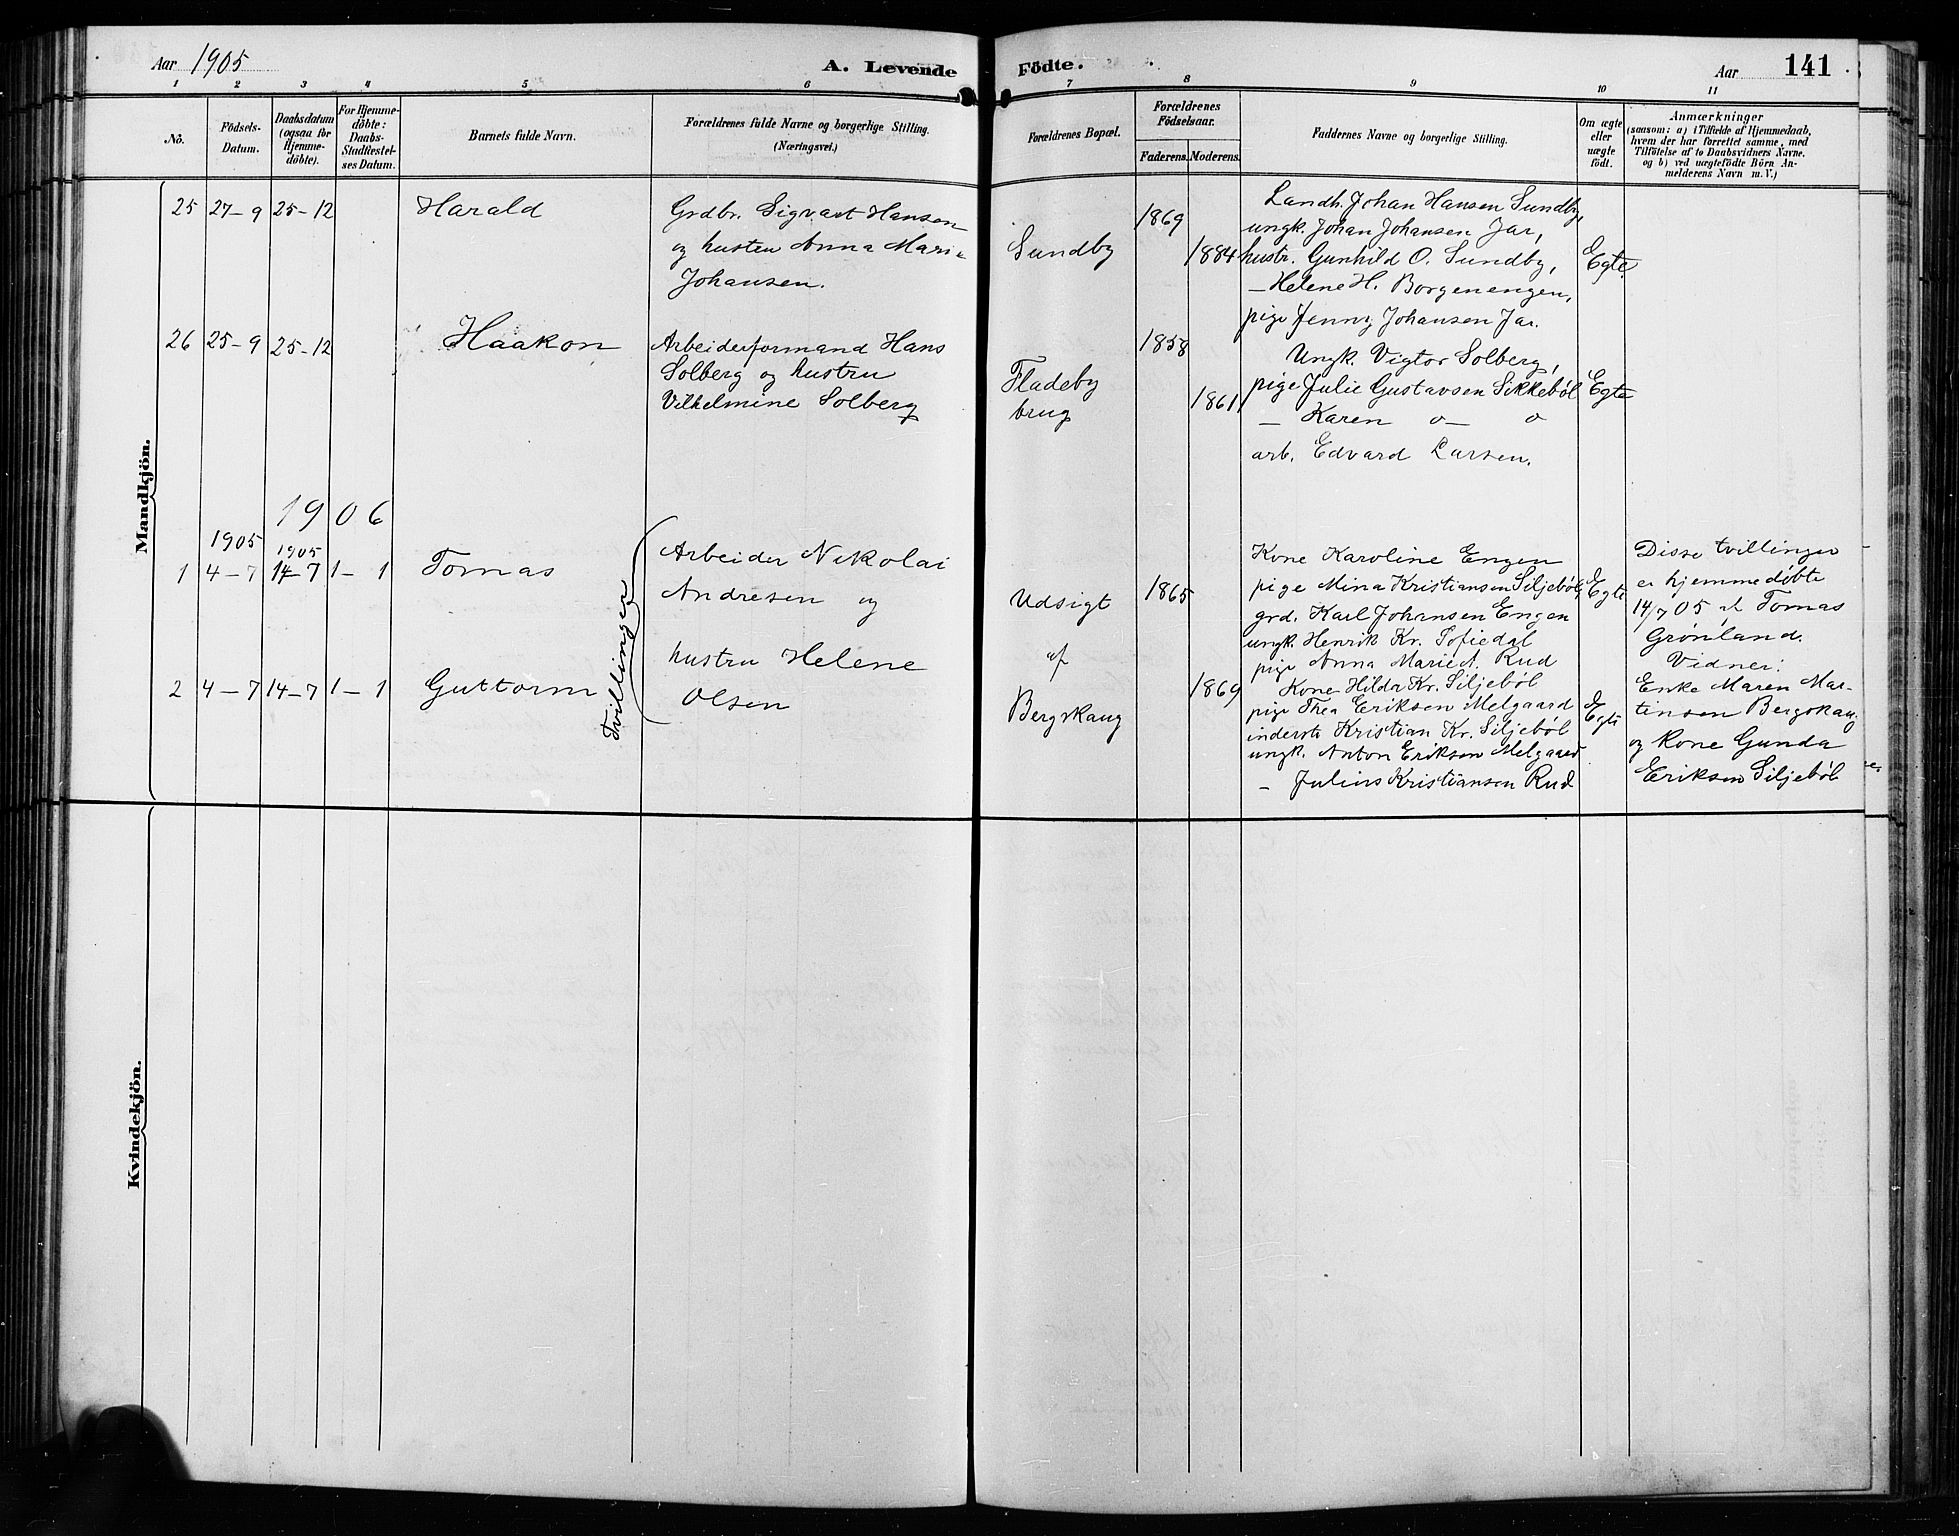 Aar 1905 A. Levende Födte. Aar 141
1 2 3 4 5 6 7 8 9 10 11
No. Födsels-Datum. Daabsdatum (ogsaa for Hjemme-döbte). For Hjemme-döbte: Daabs-Stadfæstel-ses Datum. Barnets fulde Navn. Forældrenes fulde Navne og borgerlige Stilling. (Næringsvei.) Forældrenes Bopæl. Forældrenes Födselsaar. Faderens. Moderens. Faddernes Navne og borgerlige Stilling. Om ægte eller uægte födt. Anmærkninger (saasom: a) i Tilfælde af Hjemmedaab, hvem der har forrettet samme, med Tilföielse af to Daabsvidners Navne, og b) ved uægtefödte Börn An-melderens Navn m. V.)
Mandkjön.
25 27-9 25-12 Harald
Grdbr. Sigvart Hansen
og hustru Anna Marie
Johansen.
Sundby
1869
1884
Landh. Johan Hansen Sundby,
ungk. Johan Johansen Jar,
hustr. Gunhild O. Sundby,
— Helene H. Borgenengen,
pige Jenny Johansen Jar.
Egte.
26 25-9 25-12 Haakon
Arbeiderformand Hans
Solberg og hustru
Vilhelmine Solberg
Fladeby
brug
1858
1861
Ungk. Vigtor Solberg,
pige Julie Gustavsen Sikkebøl
— Karen o— o
arb. Edvard Larsen.
Egte
1906
1905 1905
1 4-7 14-7 1-1 Tomas
2 4-7 14-7 1-1 Guttorm
Tvillinger
Arbeider Nikolai
Andresen og
hustru Helene
Olsen
Udsigt
af
Bergskaug
1865
1869
Kone Karoline Engen
pige Mina Kristiansen Siljebøl,
grd. Karl Johansen Engen
ungk. Henrik Kr. Sofiedal
pige Anna Marie A. Rud
Egte
Kone Hilda Kr. Siljebøl
pige Thea Eriksen Melgaard
inderste Kristian Kr. Siljebøl
ungk. Anton Eriksen Melgaard
— Julius Kristiansen Rud
Egte
Disse tvillinger
er hjemmedøbte
14/7 05 af Tomas
Grønland.
Vidner:
Enke Maren Mar-
tinsen Bergskaug
og Kone Gunda
Eriksen Siljebøl
Kvindekjön.